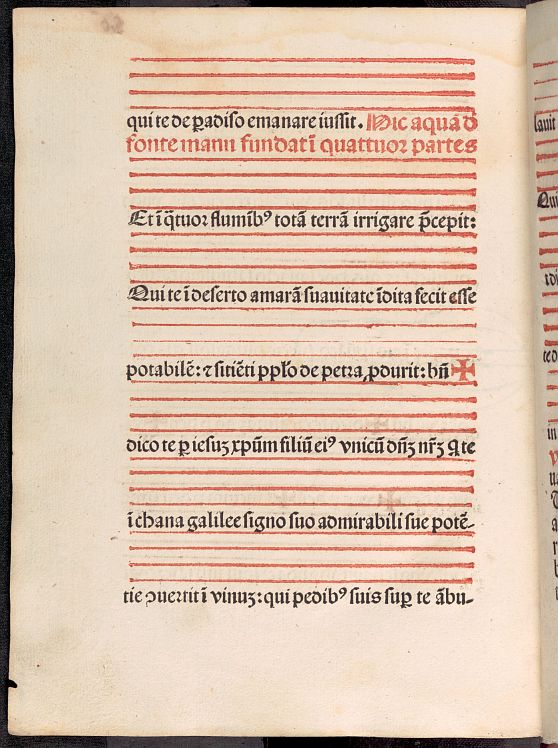 qui te de ꝑadiso emanare iussit. Hic aquā d̄
fonte manu fundat ī quattuor partes
Et ī q̄tuor flumībꝰ totā terrā irrigare p̄cepit:
Qui te ī deserto amarā suauitate īdita fecit esse
potabilē: ⁊ sitiēti ppl̄o de petra ꝓdurit: bn̄ ✠
dico te ꝑ iesuꝫ xp̄um filiū eiꝰ vnicū dn̄ꝫ nr̄ꝫ q te
ī chana galilee signo suo admirabili sue potē-
tie ꝯuertit ī vinuꝫ: qui pedibꝰ suis suꝑ te ābu-
lauit
Qui
in